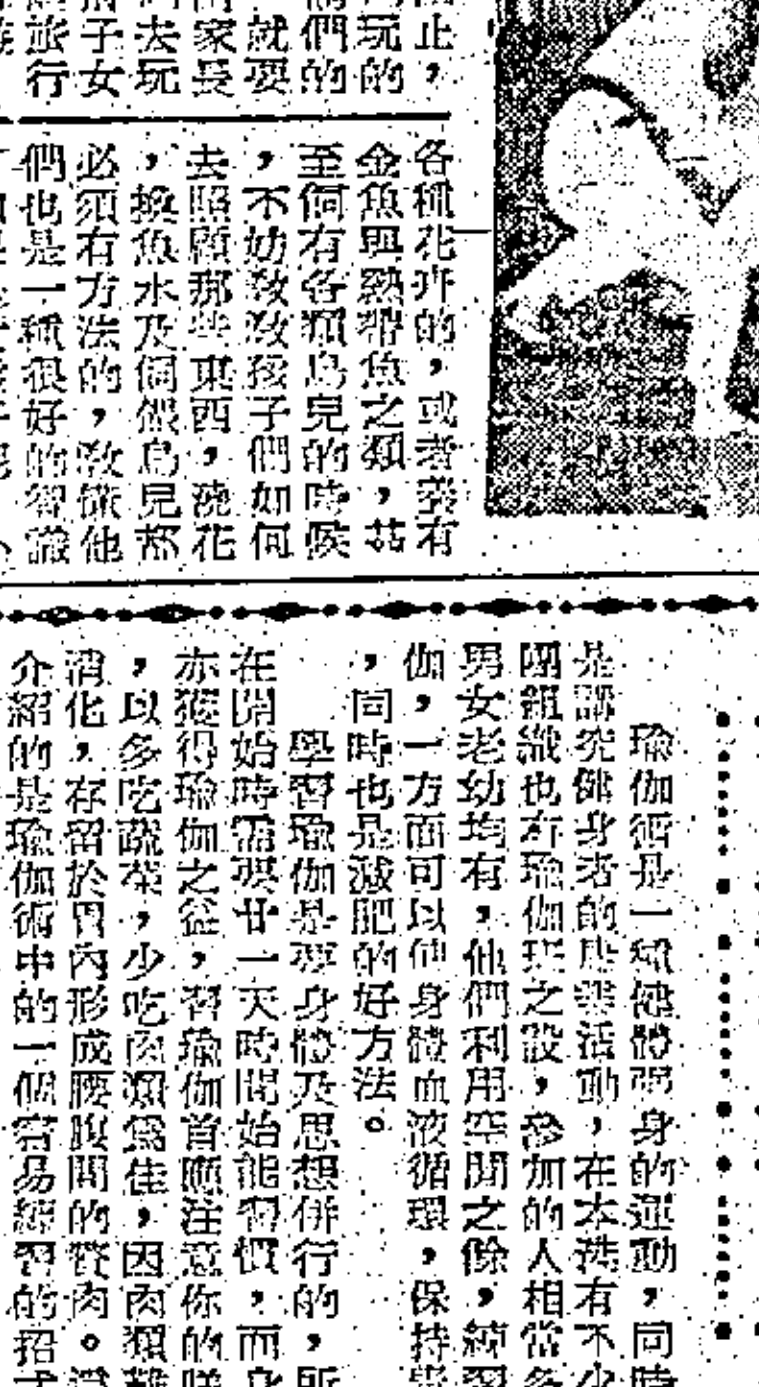 止，
玩的，
們的
就要
家長
去玩
子女
旅行
各種花卉的，或者養有
金魚與熱帶魚之類，甚
至飼有各類鳥兒的時候
，不妨教教孩子們如何
去照顧那些東西，澆花
，換魚水及飼餵鳥兒都
必須有方法的，教懂他
們也是一種很好的智識
瑜伽術是一種健體強身的運動，同時
是講究健身者的良業活動，在本港有不少
團組織也有瑜伽班之設，參加的人相當多
男女老幼均有，他們利用空閒之餘，練習
伽，一方面可以使身體血液循環，保持
，同時也是減肥的好方法。
學習瑜伽是要身體及思想併行的，所
在開始時需要廿一天時間始能習慣，而身
亦獲得瑜伽之益，習瑜伽首應注意你的
，以多吃蔬菜，少吃肉類爲佳，因肉類難
消化，存留於胃內形成腰腹間的贅肉。
介紹的是瑜伽術中的一個容易練習的招式